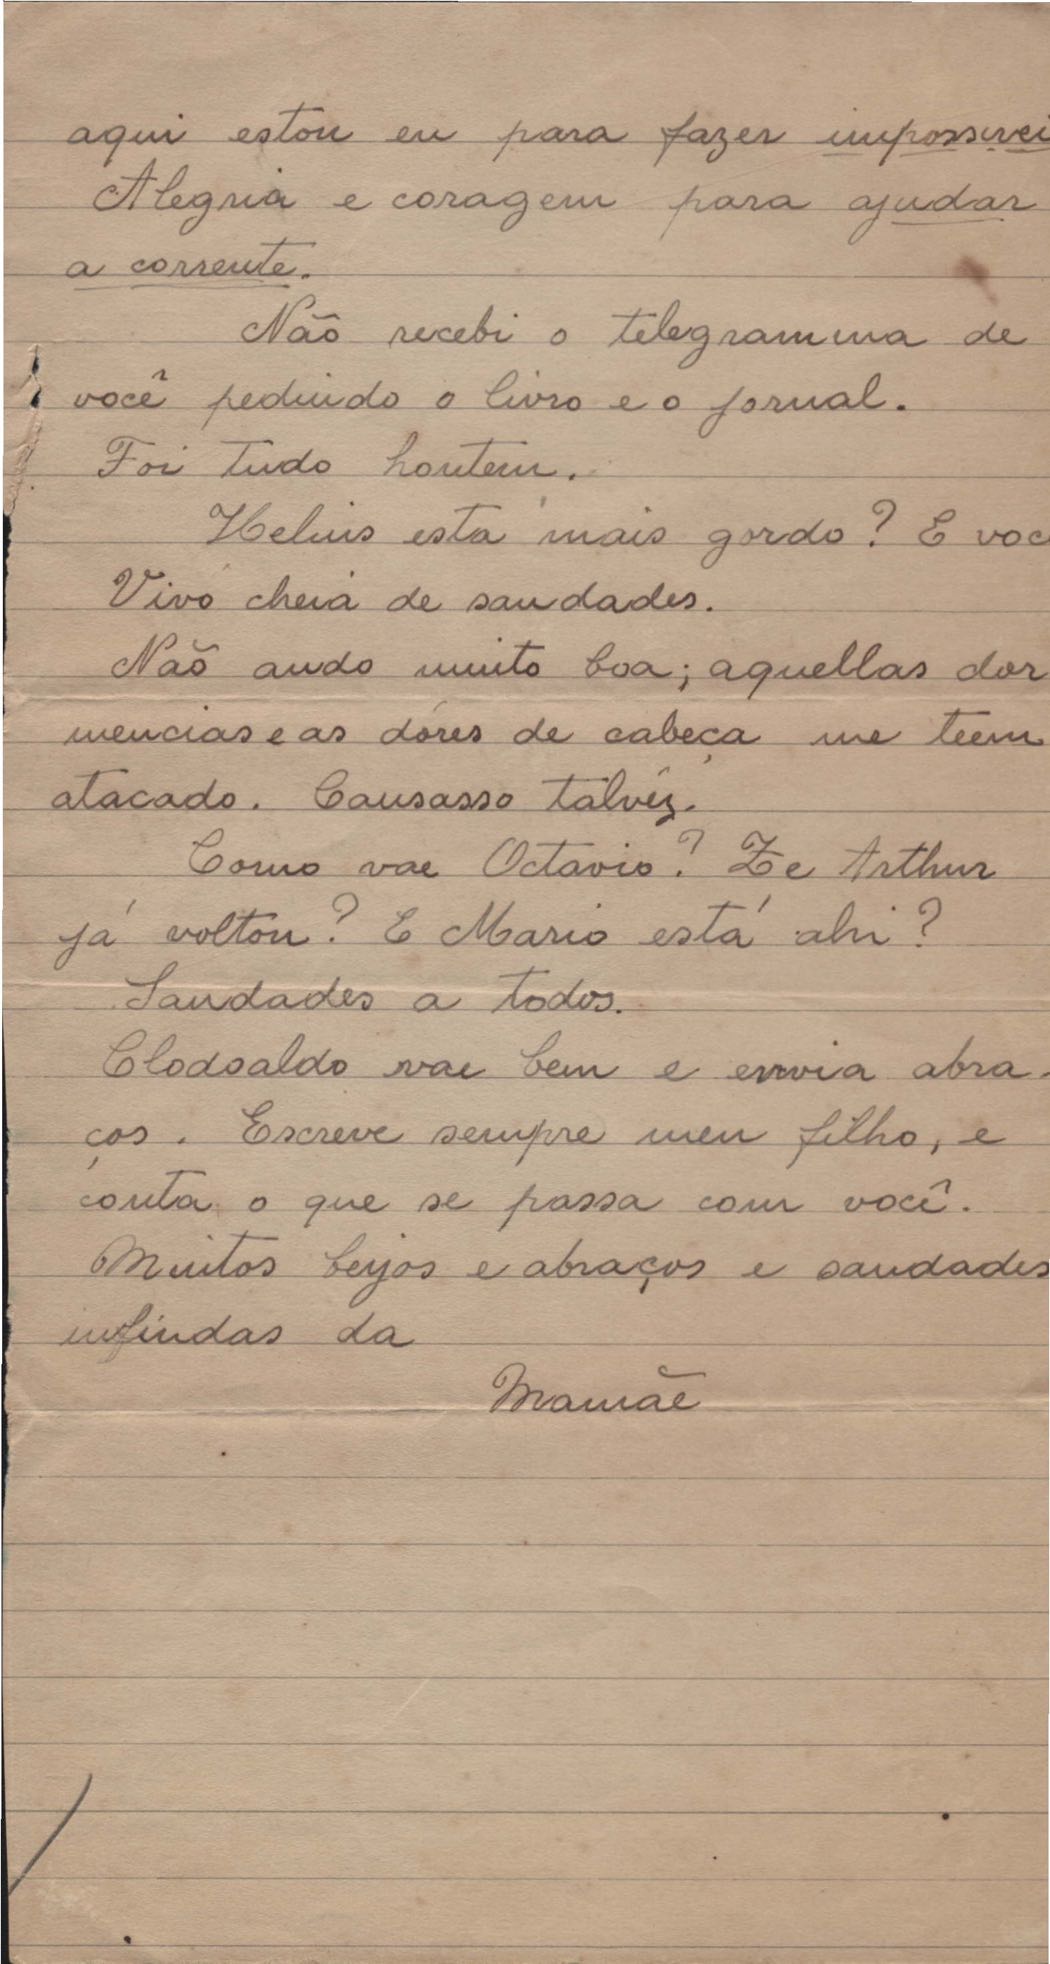 aqui estou eu para fazer impossivei
Alegria e coragem para ajudar
a corrente.
Não recebi o telegramma de
você pedindo o livro e o jornal.
Foi tudo hontem.
Helius está mais gordo? E voc
Vivo cheia de saudades.
Não ando muito boa; aquellas dor
mencias e as dôres de cabeça me teem
atacado. Causasso talvêz.
Como vae Octavio? Zé Arthur
já voltou? E Mario está ahi?
Saudades a todos.
Clodoaldo vae bem e envia abra-
ços. Escreve sempre meu filho, e
conta o que se passa com você.
Muitos beijos e abraços e saudades
infindas da
Mamãe